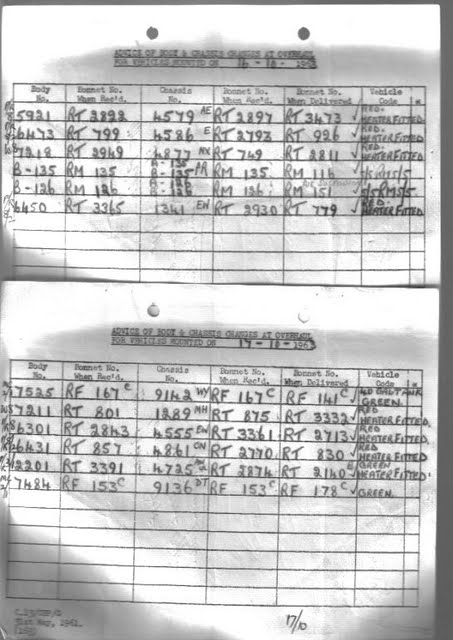 ADVICE OF BODY & CHASSIS CHANGES AT OVERHAUL
FOR VEHICLES MOUNTED ON 16 - 10 - 1963
Body No. Bonnet No. When Rec'd. Chassis No. Bonnet No. Bonnet No. When Delivered Vehicle Code *
5921 RT 2892 4579 AE RT 2897 RT 3473 ✓ RED. HEATER FITTED
6473 RT 799 4586 E RT 2793 RT 926 ✓ RED. HEATER FITTED
7218 RT 2949 4877 NX RT 749 RT 2811 ✓ RED. HEATER FITTED.
B-135 RM 135 B-135 RM 135. RM 116
B-126 RM 126 RM 126 RM 151
6450 RT 3365 1341 EN RT 2930 RT 779 ✓ RED HEATER FITTED.
ADVICE OF BODY & CHASSIS CHANGES AT OVERHAUL
FOR VEHICLES MOUNTED ON 17 - 10 - 1963
Body No. Bonnet No. When Rec'd. Chassis No. Bonnet No. Bonnet No. When Delivered Vehicle Code *
7525 RF 167 C 9142 WY RF 167 C RF 141 C ✓ GREEN.
7211 RT 801 1289 MH RT 875 RT 3332 ✓ RED HEATER FITTED.
6301 RT 2843 4555 EN RT 3361 RT 2713 ✓ RED HEATER FITTED.
6431 RT 857 4861 ON RT 2770 RT 830 ✓ RED HEATER FITTED
2201 RT 3391 4725 RT 2874 RT 2140 GREEN HEATER FITTED.
7484 RF 153 C 9136 DT RF 153 C RF 178 C ✓ GREEN.
31st May, 1961.
17/10